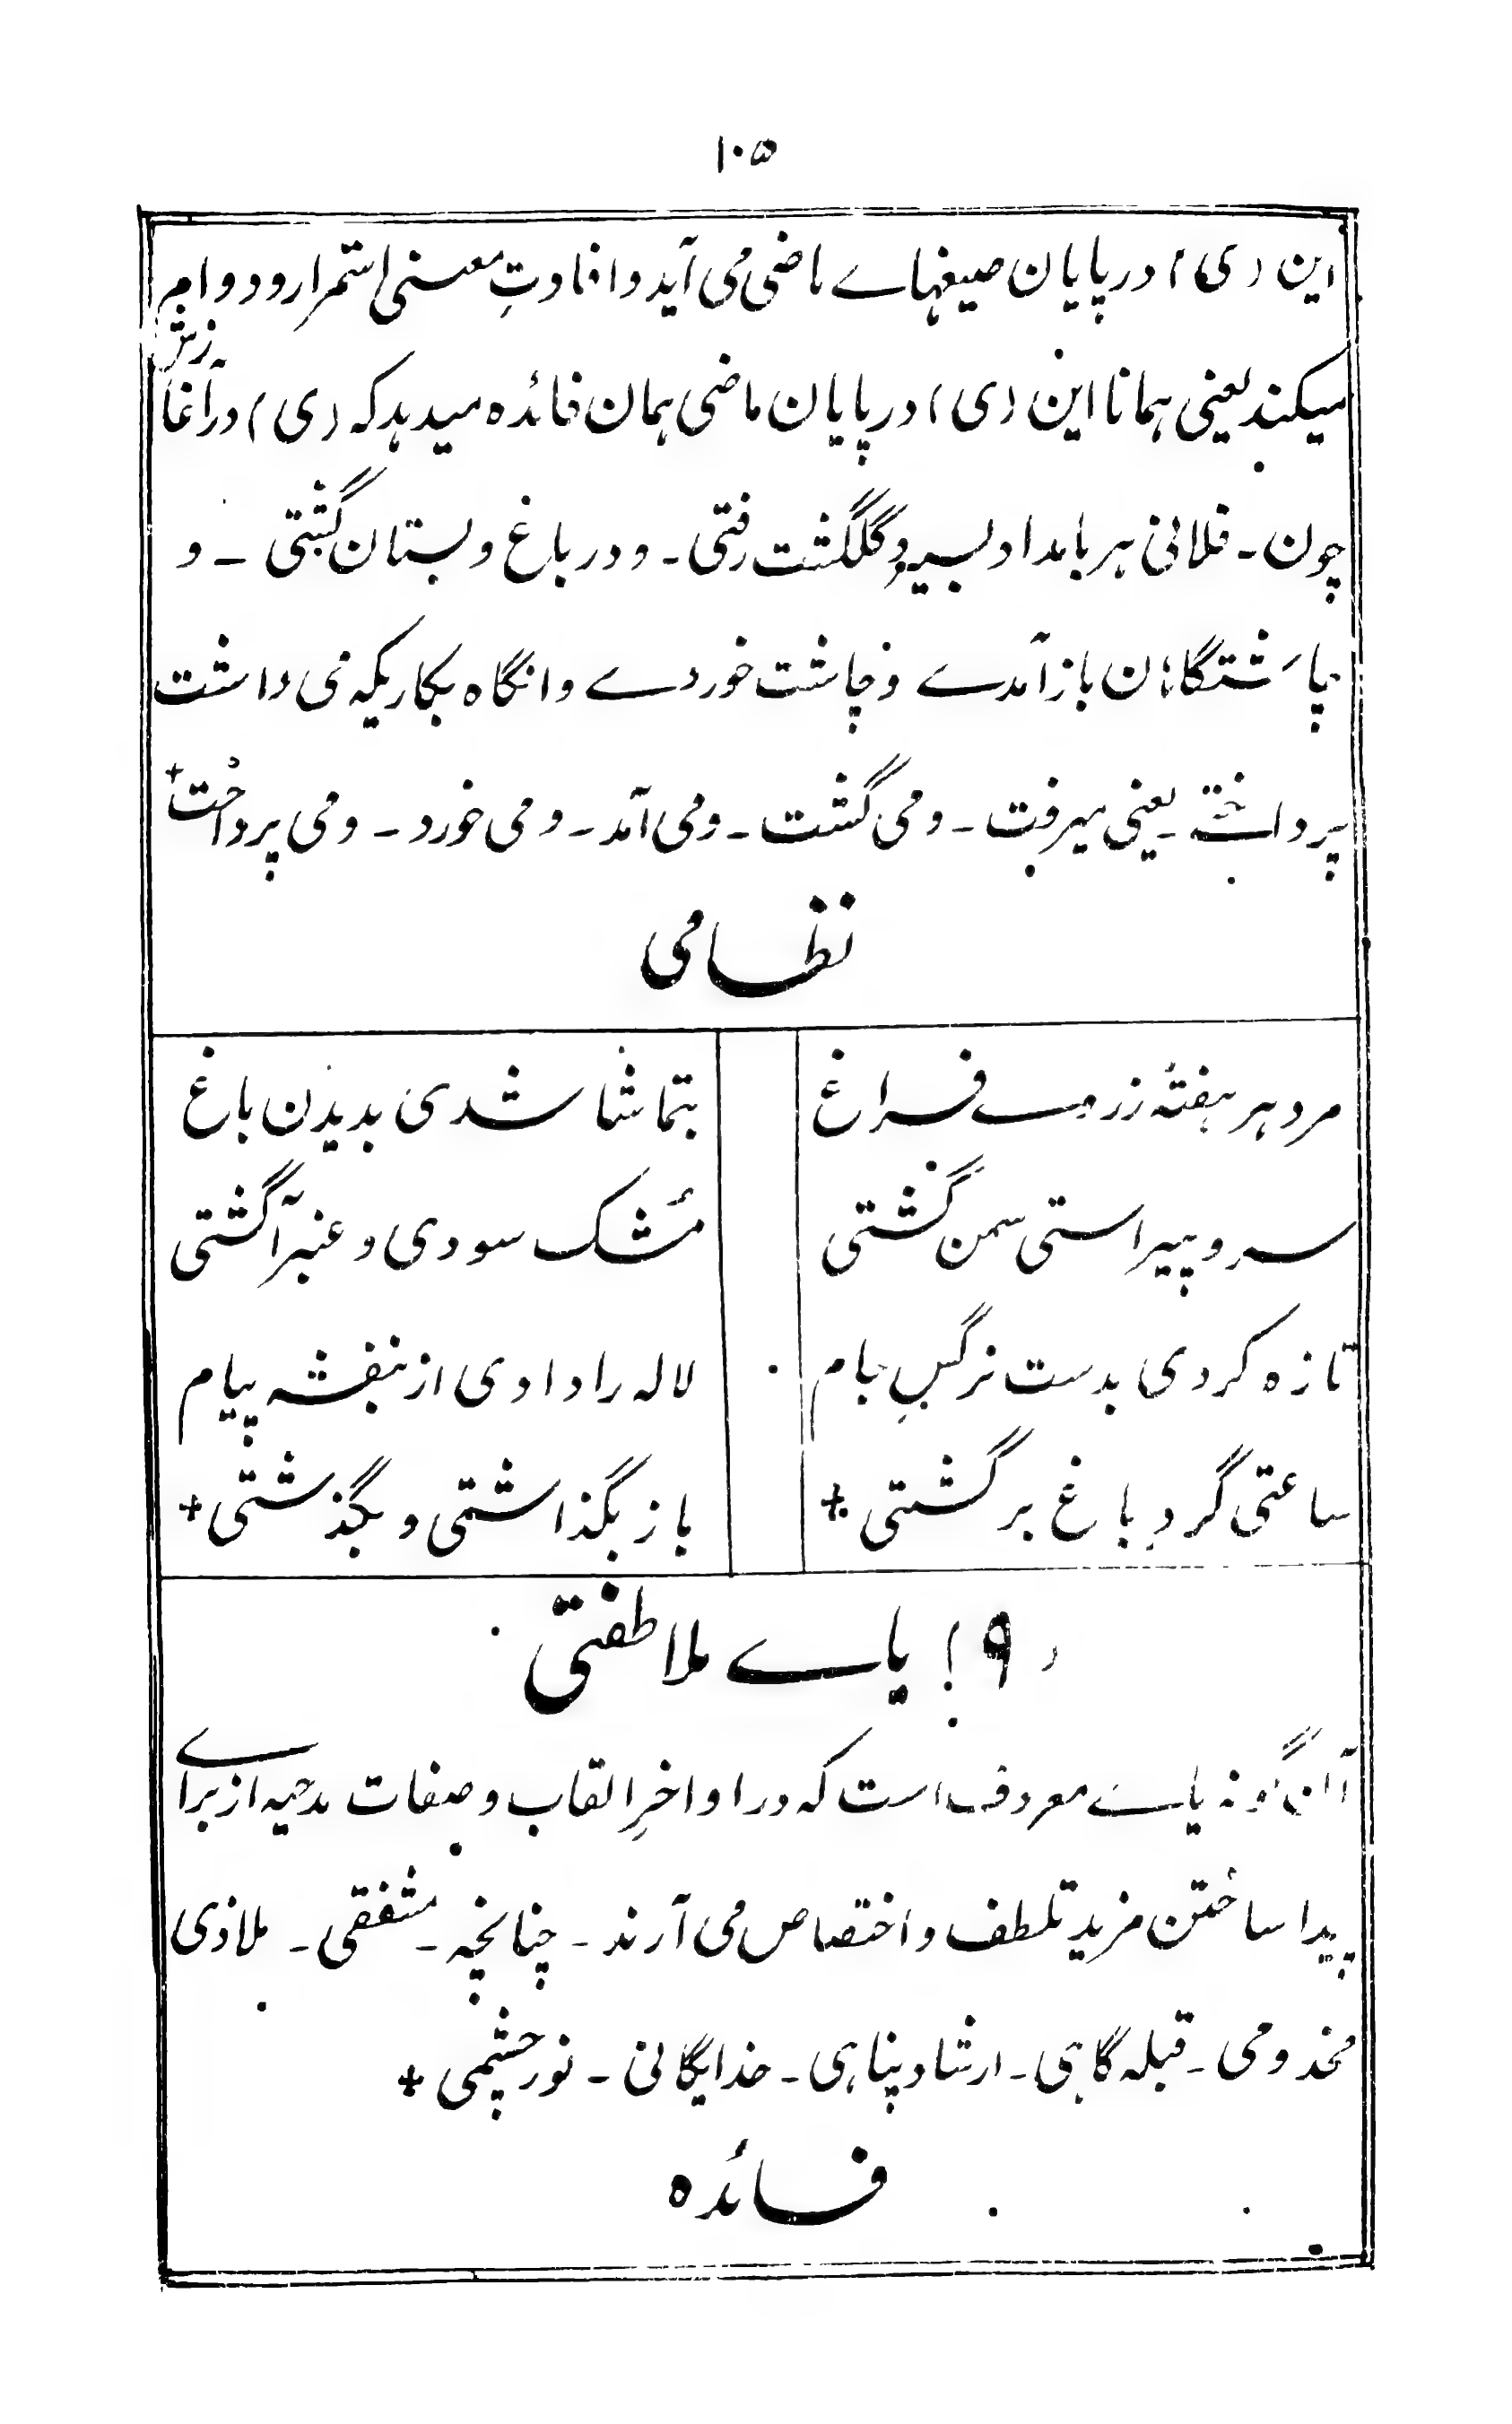 ۱۰۵
این (ی) در پایان صیغہاے ماضی می آید و افادتِ معنی استمرار و دوام
میکند یعنی همانا این (ی) در پایان ماضی همان فائدہ میدہد کہ (ی) در آغازش
چون ـ فلانی ہر بامداد بسیر و گلگشت رفتی ـ و در باغ و بستان گشتی ـ و
چاشتگاہان باز آمدے و چاشت خوردے و انگاہ بکاریکہ می داشت
پرداختے ـ یعنی میرفت ـ و می گشت ـ و می آمد ـ و می خورد ـ و می پرداخت +
نظامی
مرد ہر ہفتۂ زروے فراغ
بتماشا شدی بدیدن باغ
سرو پیراستی سمن گشتی
مُشک سودی و عنبر آگشتی
تازہ کردی بدست نرگس جام
لالہ را دادی از بنفشہ پیام
ساعتی گردِ باغ بر گشتی +
باز بگذاشتی و بگذشتی +
(۹) یاے ملاطفتی
آن گونہ یاے معروف است کہ در اواخرِ القاب و صفات مدحیہ از براے
پیدا ساختن مزید تلطف و اختصاص می آرند ـ چنانچہ ـ مشفقی ـ ملاذی
مخدومی ـ قبلہ گاہی ـ ارشاد پناہی ـ خدایگانی ـ نور چشمی +
فائدہ